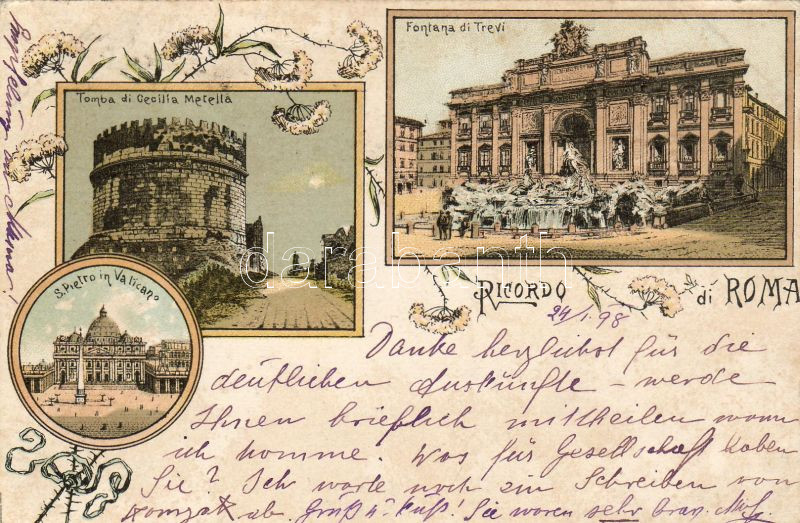 Fontana di Trevi
Tomba di Cecilia Metella
S. Pietro in Vaticano
RICORDO di ROMA
24/1.98
Danke herzlichst für die
deutlichen Auskünfte – werde
Ihnen brieflich mittheilen wann
ich komme. Was für Gesellschaft haben
Sie? Ich warte noch ein Schreiben von
ab. Gruß u. Kuß! Sie waren sehr brav.
darabanth.com